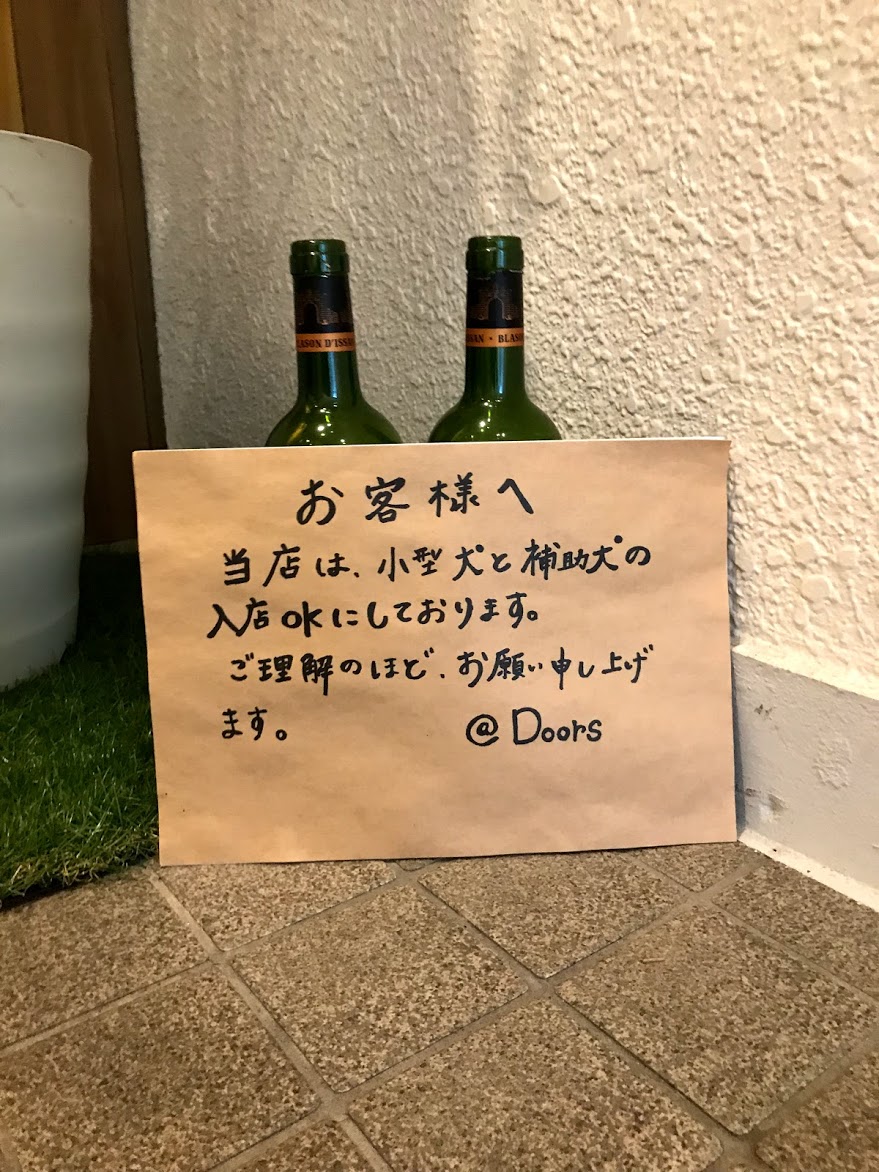 LASON D'ISSA
SSAN • BLASO
お客様へ
当店は、小型犬と補助犬の
入店OKにしております。
ご理解のほど、お願い申し上げ
ます。 @Doors